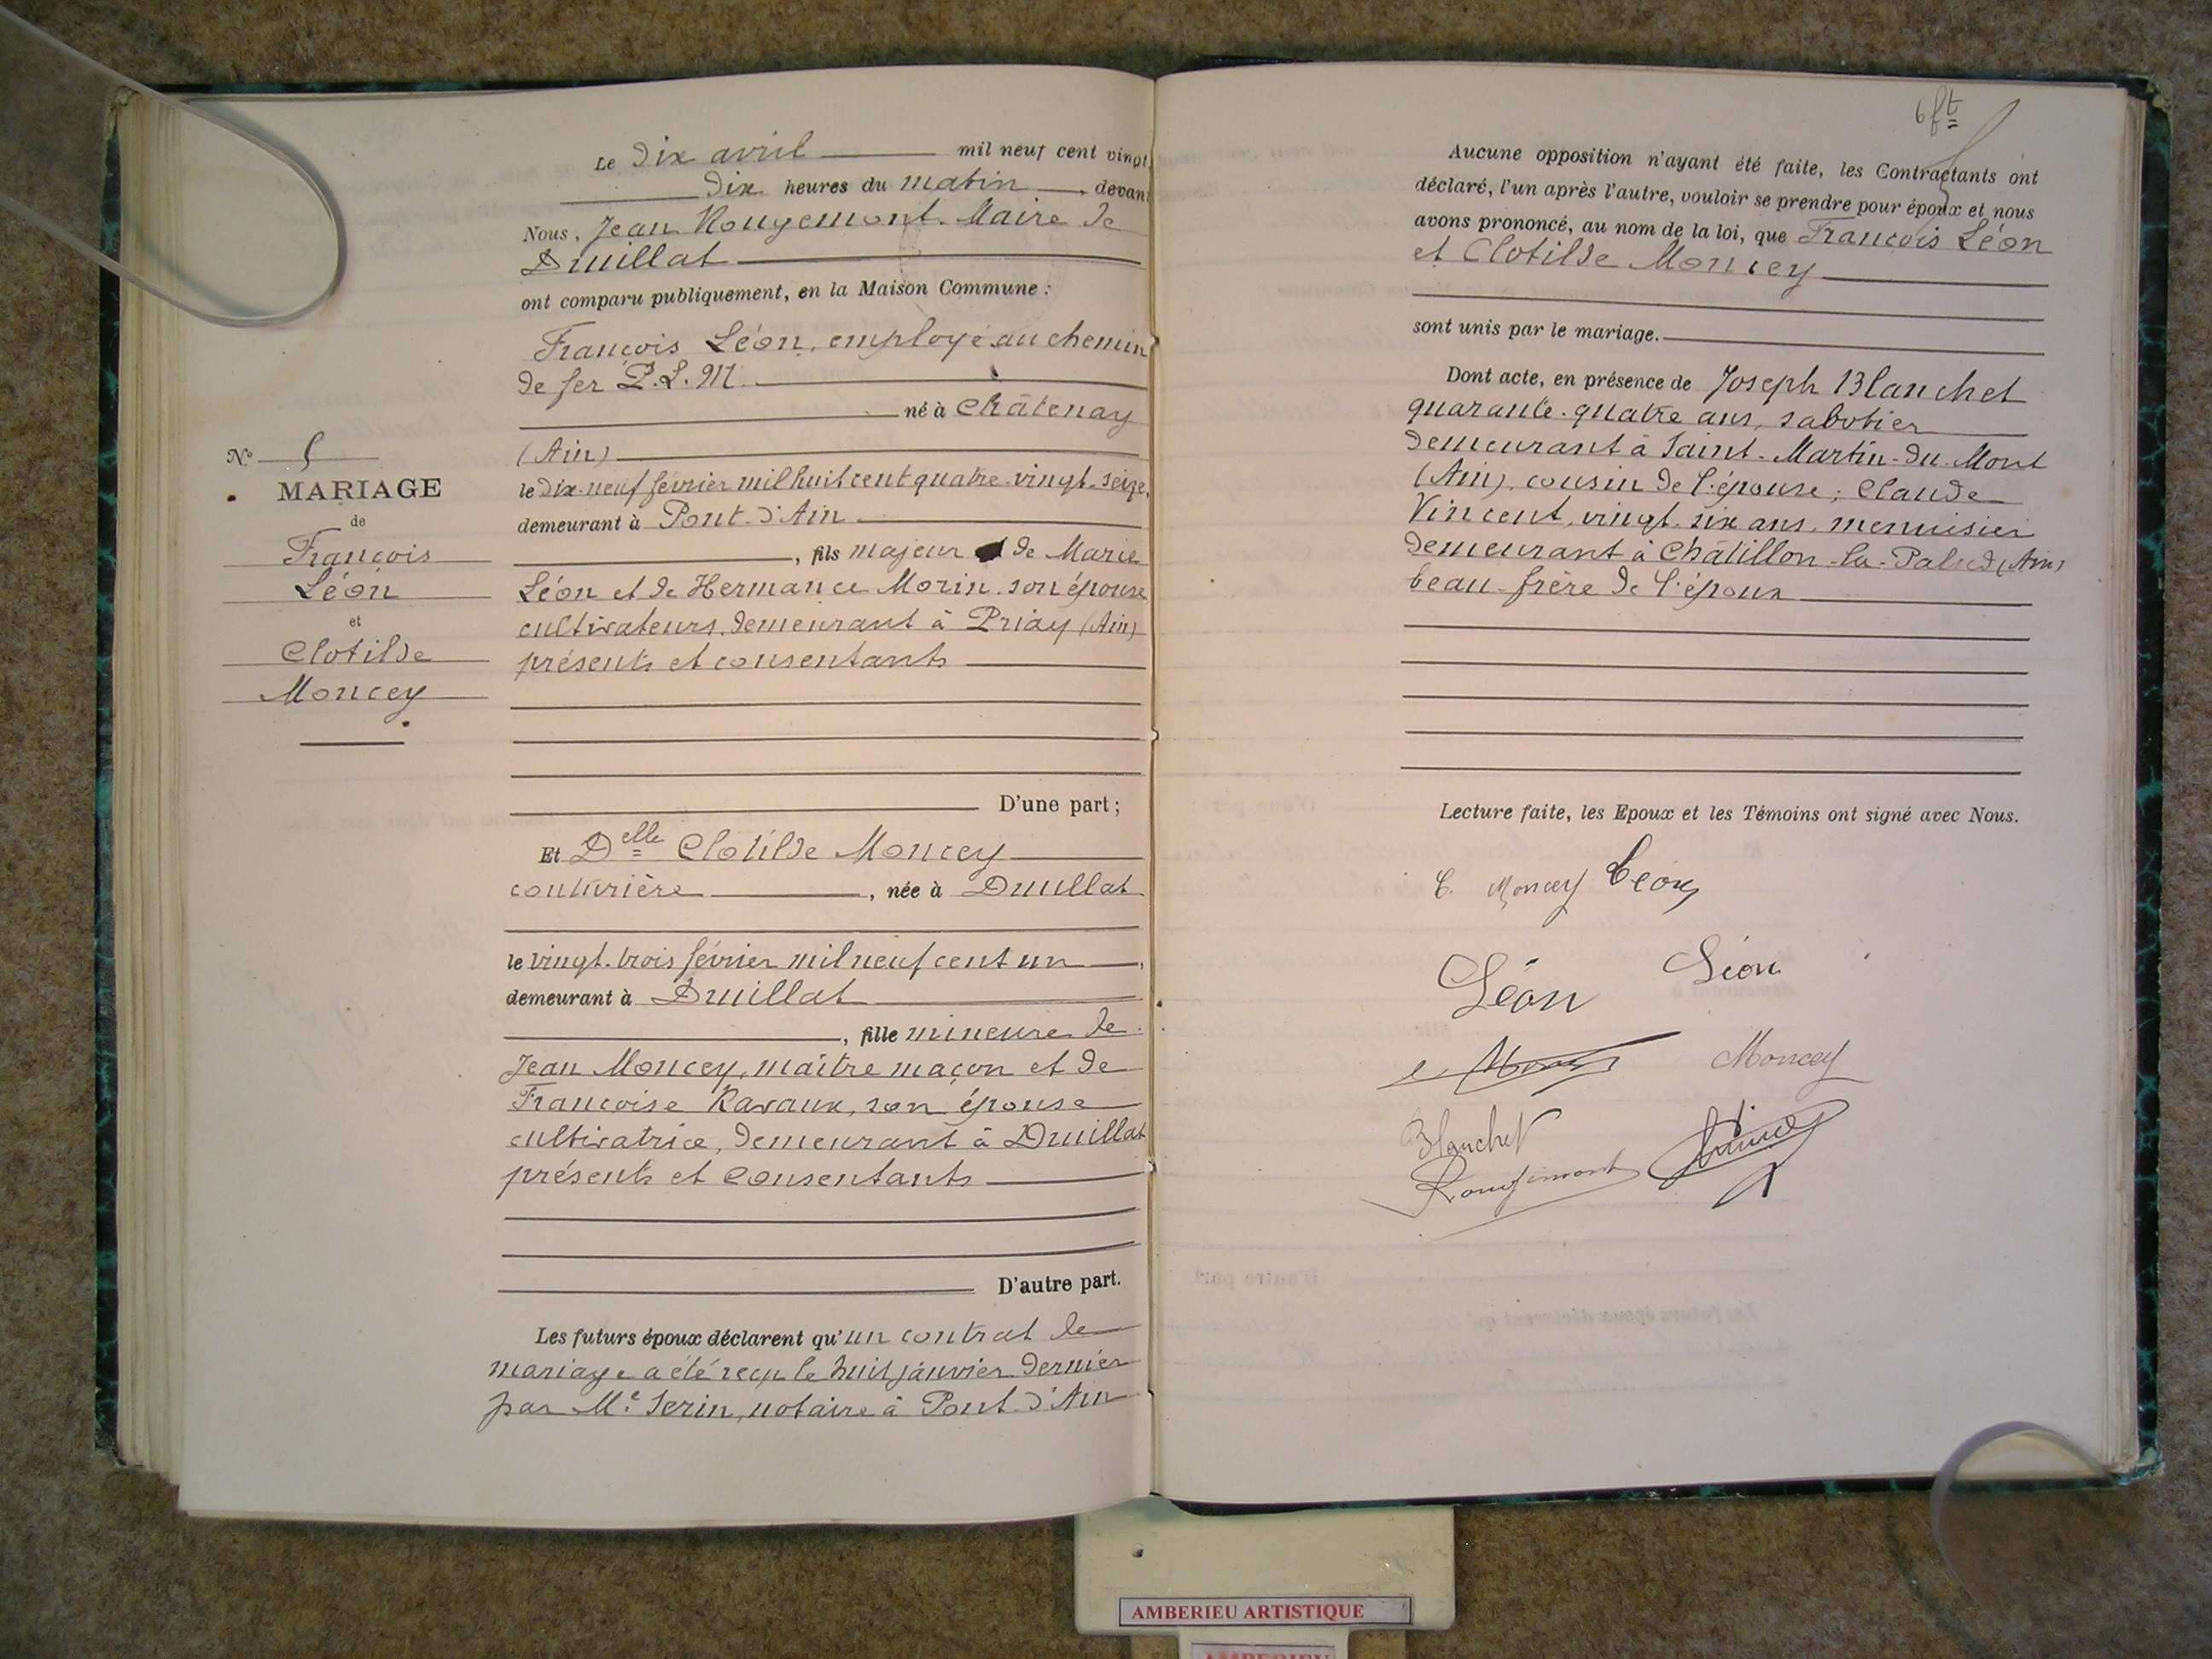 Le Dix avril mil neuf cent vingt
Dix heures du matin, devant
Nous, Jean Rougemont. Maire de
Druillat
ont comparu publiquement, en la Maison Commune :
François Léon, employé au chemin
de fer P.L.M.
né à Châtenay
(Ain)
le Dix-neuf février mil huit cent quatre-vingt-seize,
demeurant à Pont-d'Ain
, fils majeur de Marie
Léon et de Hermance Morin son épouse
cultivateurs, demeurant à Priay (Ain)
présents et consentants
D'une part ;
Et Delle Clotilde Moncey
couturière, née à Druillat
le vingt-trois février mil neuf cent un,
demeurant à Druillat
, fille mineure de
Jean Moncey, maître maçon et de
Françoise Ravaux, son épouse
cultivatrice, demeurant à Druillat
présents et consentants
D'autre part.
Les futurs époux déclarent qu'un contrat de
mariage a été reçu le huit janvier dernier
par Me Serin, notaire à Pont-d'Ain
No 5
MARIAGE
de
François
Léon
et
Clotilde
Moncey
6 ft
Aucune opposition n'ayant été faite, les Contractants ont
déclaré, l'un après l'autre, vouloir se prendre pour époux et nous
avons prononcé, au nom de la loi, que François Léon
et Clotilde Moncey
sont unis par le mariage.
Dont acte, en présence de Joseph Blanchet
quarante-quatre ans, sabotier
demeurant à Saint-Martin-du-Mont
(Ain), cousin de l'épouse ; Claude
Vincent, vingt-six ans, menuisier
demeurant à Châtillon-la-Palud (Ain)
beau-frère de l'époux
Lecture faite, les Epoux et les Témoins ont signé avec Nous.
C. Moncey Léon
Léon Léon
Moncey
Blanchet
Rougemont
AMBERIEU ARTISTIQUE
AMBERIEU